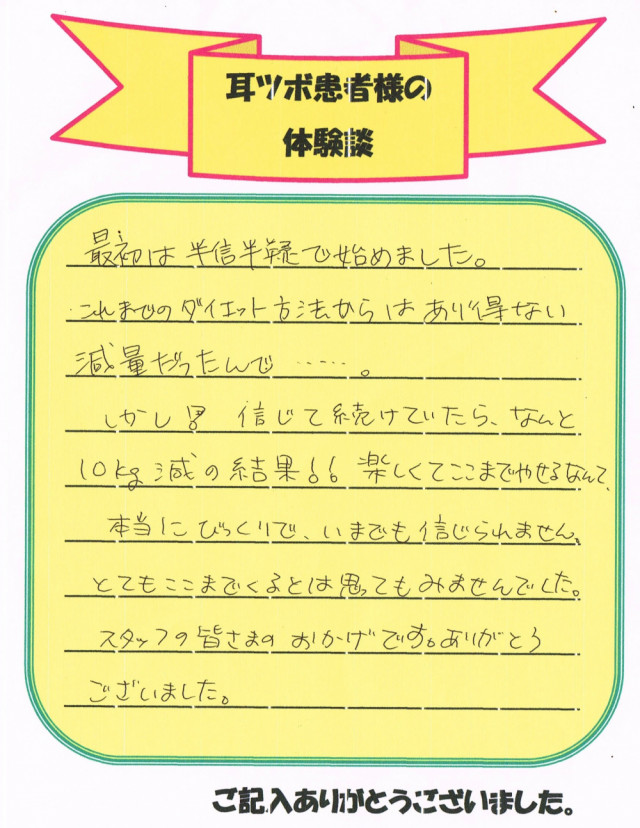 耳ツボ患者様の
体験談
最初は半信半疑で始めました。
これまでのダイエット方法からはあり得ない
減量だったんで……。
しかし!! 信じて続けていたら、なんと
10kg減の結果!! 楽しくてここまでやせるなんて、
本当にびっくりで、いまでも信じられません。
とてもここまでくるとは思ってもみませんでした。
スタッフの皆さまのおかげです。ありがとう
ございました。
ご記入ありがとうございました。